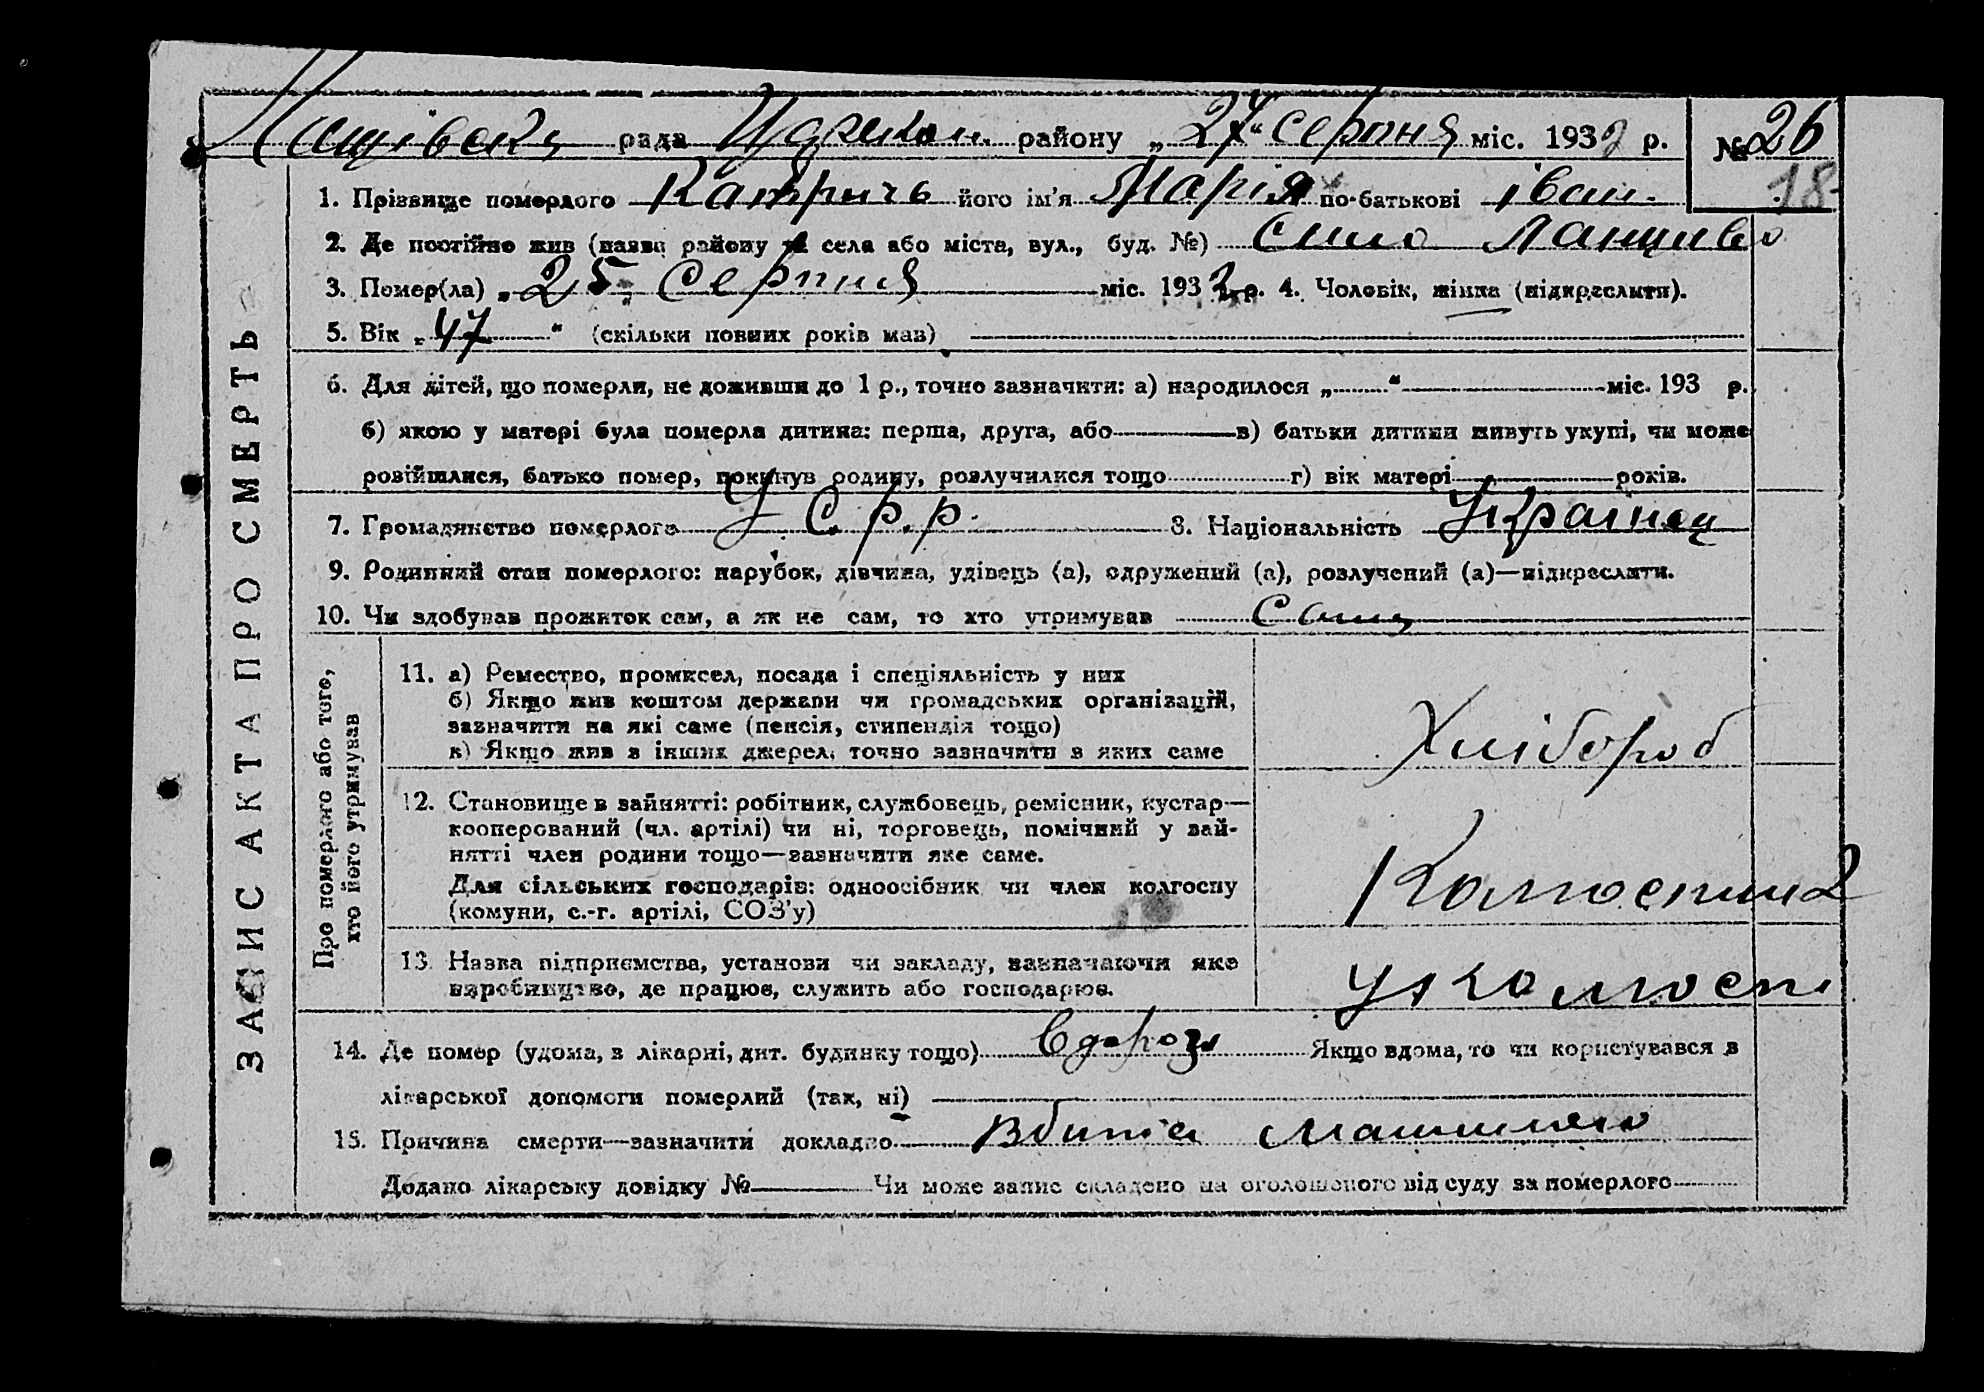 рада району „27“ серпня міс. 1932 р. № 26
18
1. Прізвище померлого його ім'я Марія по-батькові Іван.
2. Де постійно жив (назва району та села або міста, вул., буд. №) село
3. Помер(ла) „25“ серпня міс. 1932 р. 4. Чоловік, жінка (підкреслити).
5. Вік „47“ (скільки повних років мав)
6. Для дітей, що померли, не доживши до 1 р., точно зазначити: а) народилося „ “ міс. 193 р.
б) якою у матері була померла дитина: перша, друга, або в) батьки дитини живуть укупі, чи може
розійшлися, батько помер, покинув родину, розлучилися тощо г) вік матері років.
7. Громадянство померлого У С. р. р. 8. Національність
9. Родинний стан померлого: парубок, дівчина, удівець (а), одружений (а), розлучений (а)—підкреслити.
10. Чи здобував прожиток сам, а як не сам, то хто утримував Сама
ЗАПИС АКТА ПРО СМЕРТЬ
Про померлого або того,
хто його утримував
11. а) Ремество, промисел, посада і спеціяльність у них
б) Якщо жив коштом держави чи громадських організацій,
зазначити на які саме (пенсія, стипендія тощо)
в) Якщо жив з інших джерел, точно зазначити з яких саме
Хлібороб
12. Становище в зайнятті: робітник, службовець, ремісник, кустар—
кооперований (чл. артілі) чи ні, торговець, помічний у зай-
нятті член родини тощо—зазначити яке саме.
Для сільських господарів: одноосібник чи член колгоспу
(комуни, с.-г. артілі, СОЗ'у)
13. Назва підприємства, установи чи закладу, зазначаючи яке
виробництво, де працює, служить або господарює.
у колгоспі
14. Де помер (удома, в лікарні, дит. будинку тощо) в дорозі Якщо вдома, то чи користувався з
лікарської допомоги померлий (так, ні)
15. Причина смерти—зазначити докладно Вбита машиною
Додано лікарську довідку № Чи може запис складено на оголошеного від суду за померлого